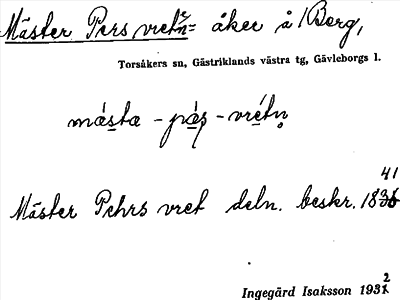 Mäster Pers vreten åker å Berg,
Torsåkers sn, Gästriklands västra tg, Gävleborgs l.
mästa - päs - vrétn̥
Mäster Pehrs vret deln. beskr. 1841
Ingegärd Isaksson 1932